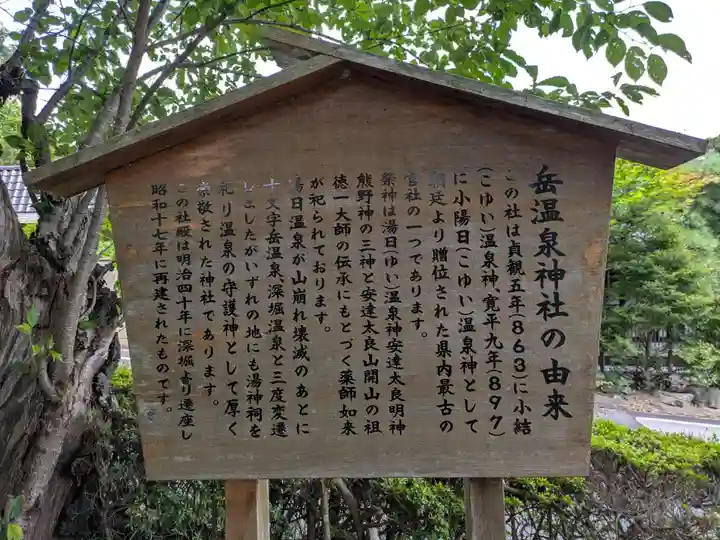 岳温泉神社の由来
この社は貞観五年(863)に小結
(こゆい)温泉神、寛平九年(897)
に小陽日(こゆい)温泉神として
朝廷より贈位された県内最古の
宮社の一つであります。
祭神は湯日(ゆい)温泉神安達太良明神
熊野神の三神と安達太良山開山の祖
徳一大師の伝承にもとづく薬師如来
が祀られております。
湯日温泉が山崩れ壊滅のあとに
十文字岳温泉、深堀温泉と三度変遷
しましたがいずれの地にも湯神祠を
祀り温泉の守護神として厚く
崇敬された神社であります。
この社殿は明治四十年に深堀より遷座し
昭和十七年に再建されたものです。